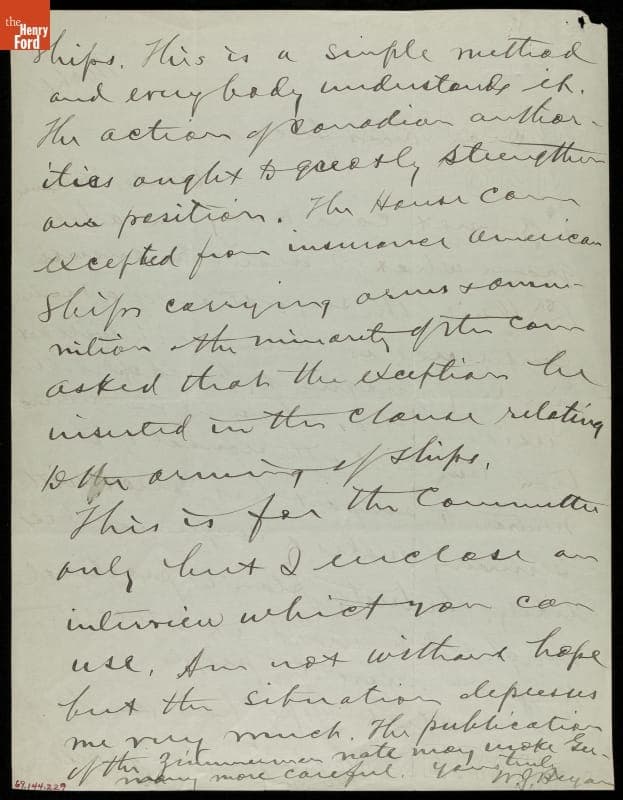 the
Henry
Ford
Ships. This is a simple method
and everybody understands it.
The action of Canadian author-
ities ought to greatly strengthen
our position. The House Com
excepted from insurance American
Ships carrying arms & ammu-
nition & the minority of the Com
asked that the exception be
inserted in the clause relating
to the arming of ships.
This is for the Committee
only but I enclose an
interview which you can
use. Am not without hope
but the situation depresses
me very much. The publication
of the Zimmerman note may make Ger-
many more careful. Yours truly
W. J. Bryan
69.144.229